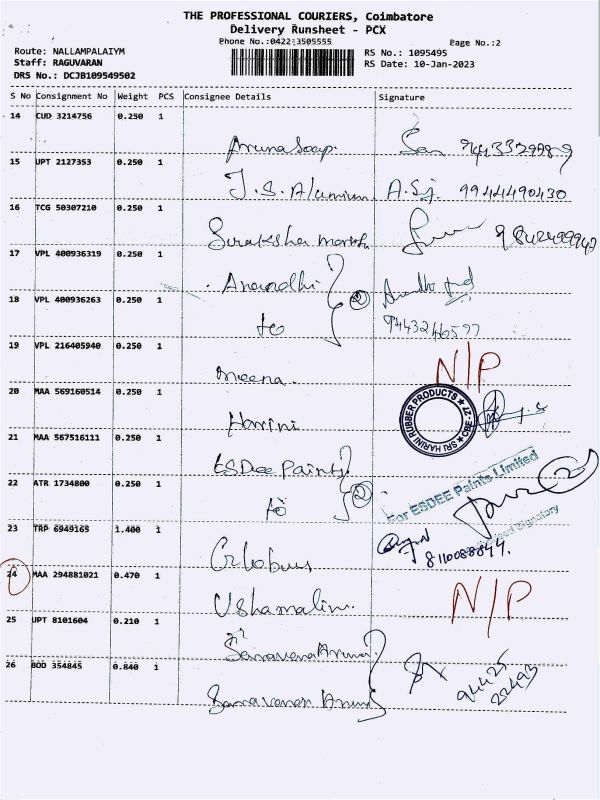 THE PROFESSIONAL COURIERS, Coimbatore
Delivery Runsheet - PCX
Phone No.:0422-3505555
Page No.:2
Route: NALLAMPALAIYM
RS No.: 1095495
Staff: RAGUVARAN
RS Date: 10-Jan-2023
DRS No.: DCJB109549502
S No Consignment No Weight PCS Consignee Details Signature
14 CUD 3214756 0.250 1
Aruna Soap.
15 UPT 2127353 0.250 1
J.S. Aluminium A.S.j. 9944490430
16 TCG 50307210 0.250 1
17 VPL 400936319 0.250 1
18 VPL 400936263 0.250 1
to 2
19 VPL 216405940 0.250 1
meena. N/P
20 MAA 569160514 0.250 1
Harini
SRI HARINI RUBBER PRODUCTS ★ CBE-27 ★
21 MAA 567516111 0.250 1
ESDee Paints
22 ATR 1734800 0.250 1
to 2
For ESDEE Paints Limited
Authorised Signatory
23 TRP 6949165 1.400 1
8110088844.
24 MAA 294881021 0.470 1
Ushamalini. N/P
25 UPT 8101604 0.210 1
Saravana Arun
26 BOD 354845 0.840 1
Saravanan Arun
94425
22493